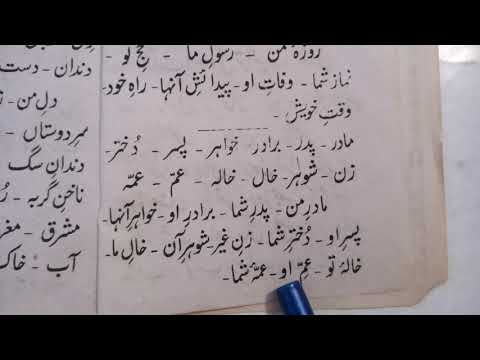 روزۂ من - رسولِ ما - حجِ تو
نمازِ شما - وفاتِ او - پیدائشِ آنہا - راہِ خود
وقتِ خویش -
مادر - پدر - برادر - خواہر - پسر - دُختر -
زن - شوہر - خال - خالہ - عم - عمّہ
مادرِ من - پدرِ شما - برادرِ او - خواہرِ آنہا -
پسرِ او - دُخترِ شما - زنِ غیر - شوہرِ آن - خالِ ما -
خالۂ تو - عمِّ او - عمّۂ شما -
دندان - دست
دلِ من -
سرِ دوستاں
دندانِ سگ
ناخنِ گربہ -
مشرق -
آب - خاک